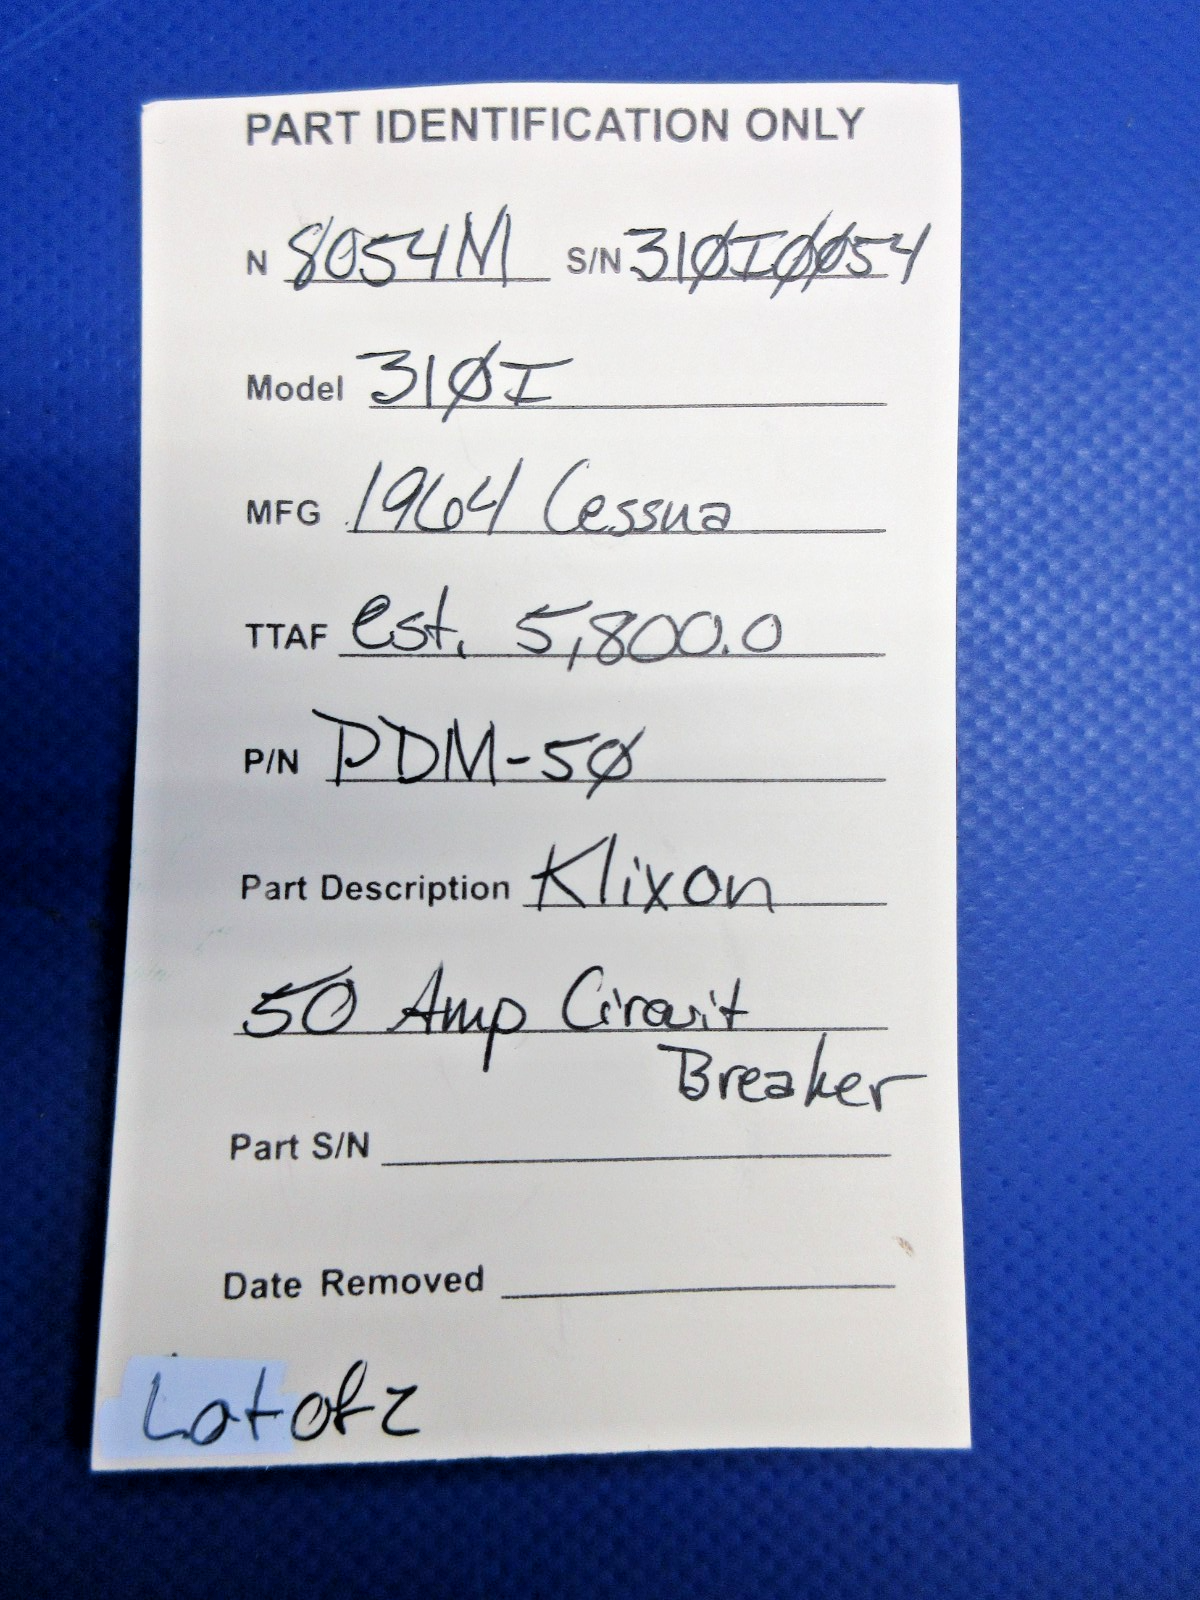 PART IDENTIFICATION ONLY
N 8054M S/N 310I0054
Model 310I
MFG 1964 Cessna
TTAF est. 5,800.0
P/N PDM-50
Part Description Klixon
50 Amp Circuit
Breaker
Part S/N
Date Removed
Lot of 2